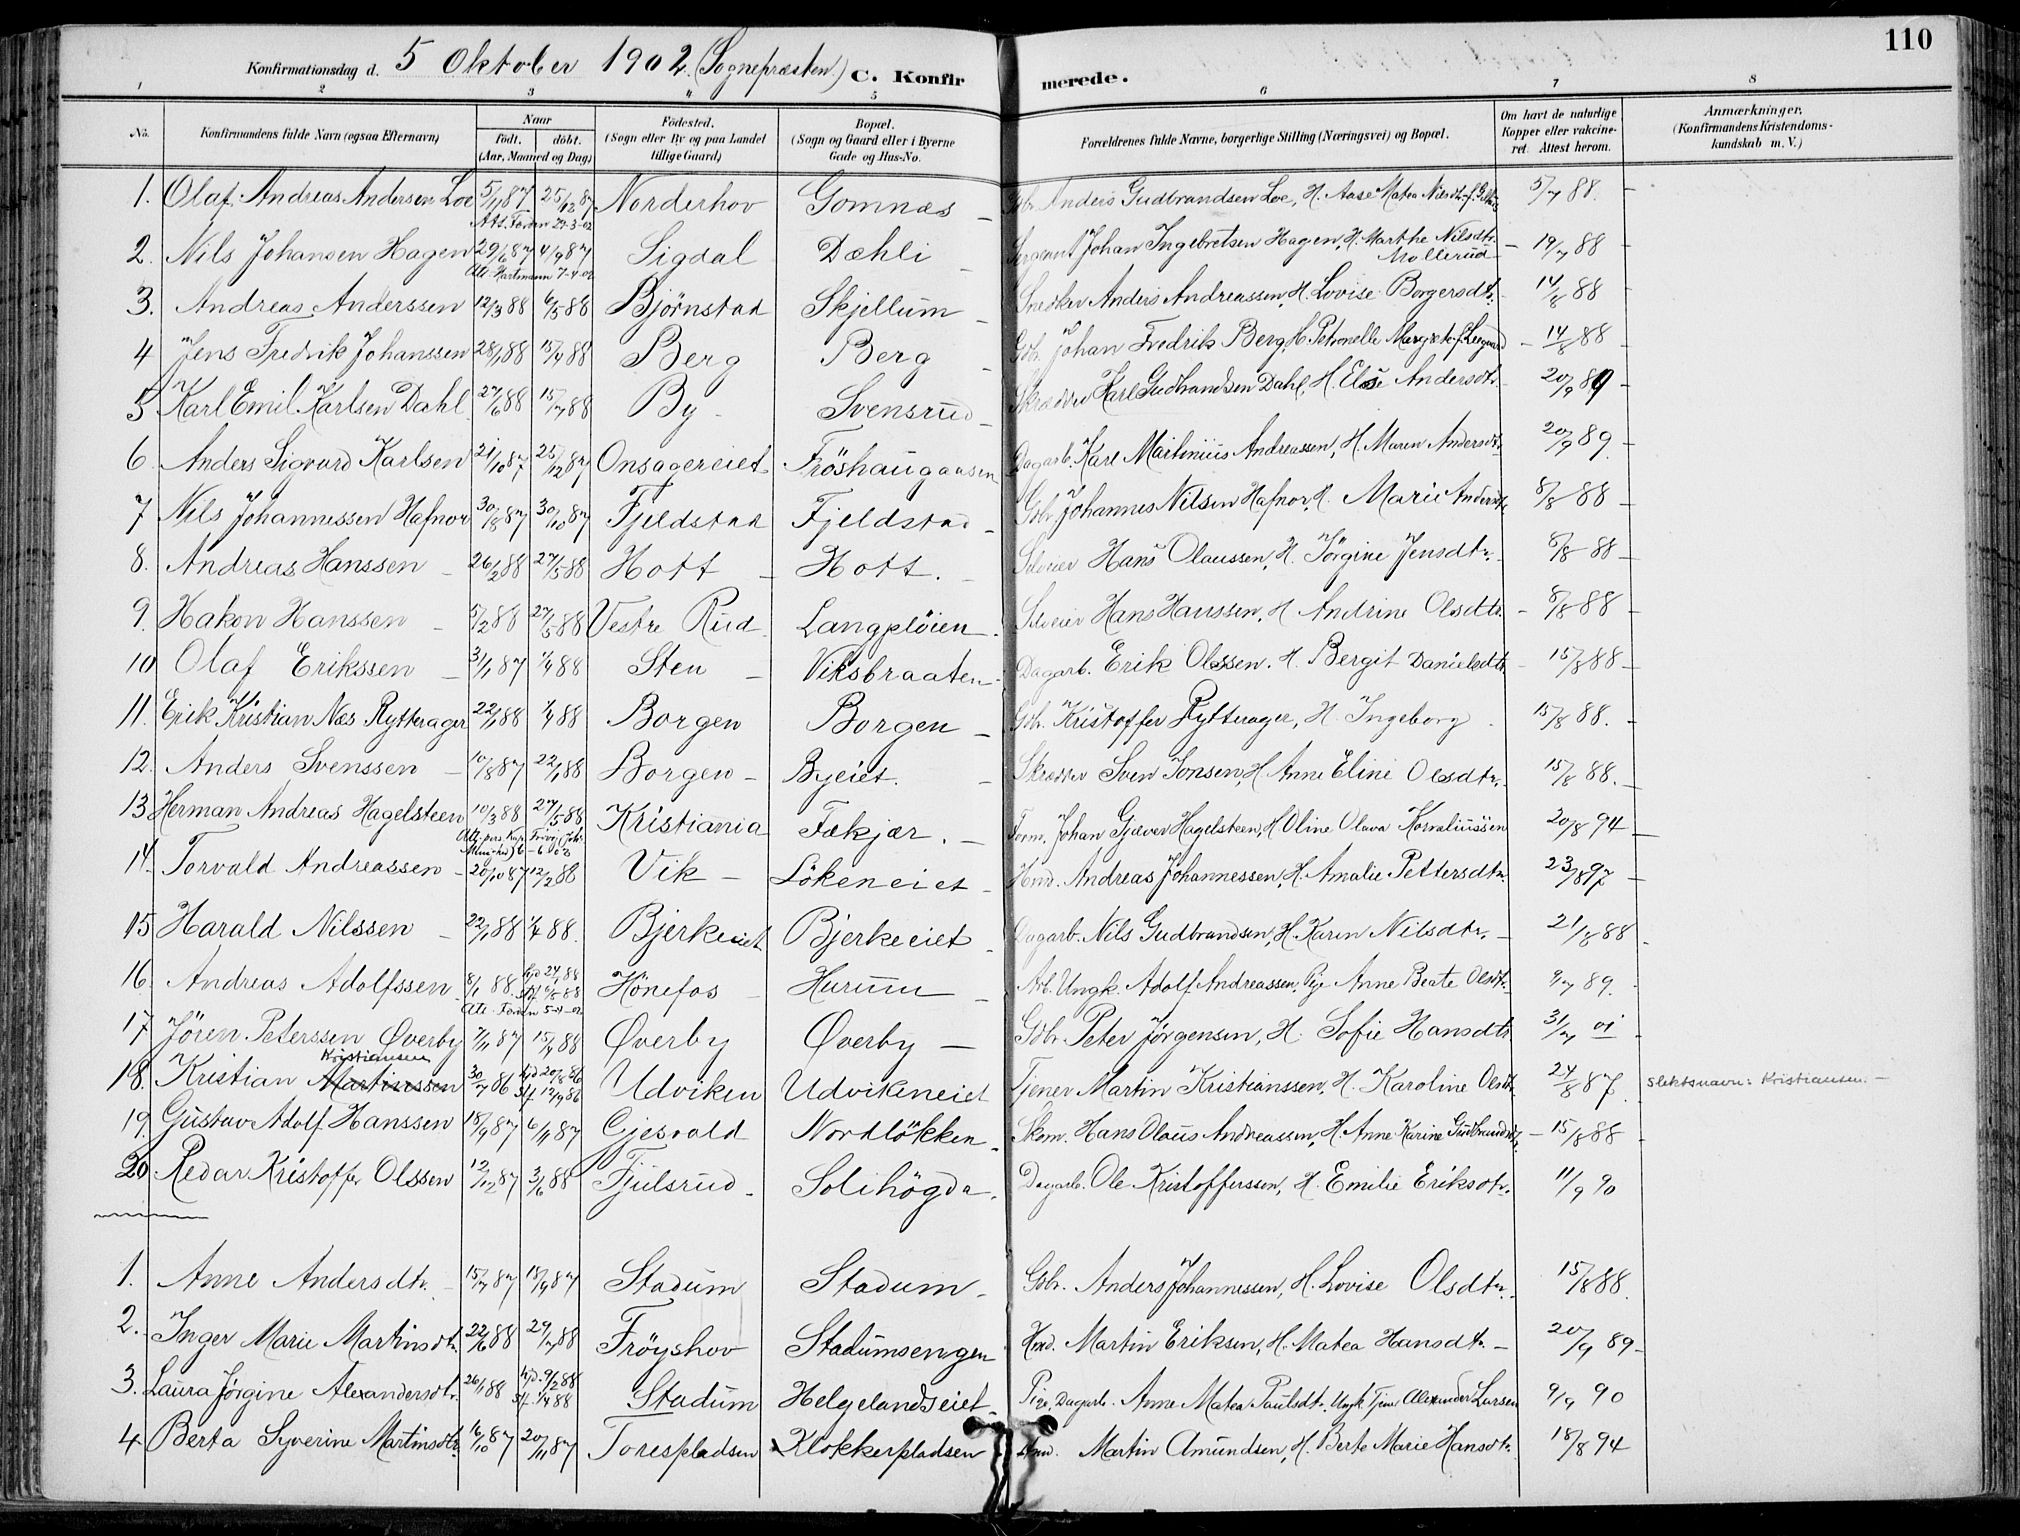 110
Konfirmationsdag d. 5 Oktober 1902. (Sognepræsten) C. Konfirmerede.
1 2 3 4 5 6 7 8
No. Konfirmandens fulde Navn (ogsaa Efternavn) Naar født. døbt. (Aar, Maaned og Dag) Fødested. (Sogn eller By og paa Landet tillige Gaard) Bopæl. (Sogn og Gaard eller i Byerne Gade og Hus-No. Forældrenes fulde Navne, borgerlige Stilling (Næringsvei) og Bopæl. Om havt de naturlige Kopper eller vakcineret. Attest herom. Anmærkninger. (Konfirmandens Kristendomskundskab m. V.)
1. Olaf Andreas Andersen Loe 5/11 87 25/12 87 Norderhov Gomnæs Gbr. Anders Gudbrandsen Loe, H. Aase Matea Nilsdtr. 5/7 88.
2. Nils Johansen Hagen 29/6 87 4/9 87 Sigdal Dæhli Sergeant Johan Ingebretsen Hagen, H. Marthe Nilsdtr. Mollerud 19/7 88
3. Andreas Anderssen 12/3 88 6/5 88 Bjørnstad Skjellum Snedker Anders Andreassen, H. Lovise Borgersdtr. 14/8 88
4 Jens Fredrik Johanssen 28/1 88 15/4 88 Berg Berg Gbr. Johan Fredrik Berg, H. Petronelle 14/8 88
5 Karl Emil Karlsen Dahl 27/6 88 15/7 88 By Svensrud Skrædder Karl Gudbrandsen Dahl, H. Elise Andersdtr. 20/9 89
6. Anders Sigvard Karlsen 21/10 87 25/12 87 Onsagereiet Fröshaugaasen Dagarb. Karl Martinius Andreassen, H. Maren Andersdtr. 20/9 89
7 Nils Johannessen Hafnor 30/8 87 30/10 87 Fjeldstad Fjeldstad Gbr. Johannes Nilsen Hafnor, H. Marie Andersdtr. 8/8 88
8. Andreas Hanssen 26/2 88 27/5 88 Hott Hott. Selveier Hans Olaussen, H. Jörgine Jensdtr. 8/8 88
9. Hakon Hanssen 5/2 88 27/5 88 Vestre Rud Langplöien Selveier Hans Hanssen, H. Andrine Olsdtr. 8/8 88
10 Olaf Erikssen 31/1 87 1/4 88 Sten Viksbraaten Dagarb. Erik Olssen. H. Bergit Danielsdtr. 15/8 88
11. Erik Kristian Næs Rytterager 22/1 88 1/4 88 Borgen Borgen Gbr. Kristoffer Rytterager, H. Ingeborg 15/8 88.
12. Anders Svenssen 10/8 87 22/1 88 Borgen Byeiet. Skrædder Sven Jonsen, H. Anne Eline Olsdtr. 15/8 88.
13 Herman Andreas Hagelsteen 10/3 88 27/5 88 Kristiania Fækjær. Form. Johan Gjæver Hagelsteen, H. Oline Olava Kornaliussen 20/8 94
14. Torvald Andreassen 20/10 87 12/2 88 Vik Lökeneiet Hmd. Andreas Johannessen, H. Amalie Pettersdtr. 23/8 97
15 Harald Nilssen 22/1 88 1/4 88. Bjerkeeiet Bjerkeeiet Dagarb. Nils Gudbrandsen, H. Karen Nilsdtr. 21/8 88
16. Andreas Adolfssen 8/1 88. Hönefos Harum Arb. Ungk. Adolf Andreassen, Pige Anne Beate Olsdtr. 9/7 89.
17 Jören Peterssen Øverby 7/11 87 15/4 88 Øverby Øverby Gbr. Peter Jørgensen, H. Sofie Hansdtr. 31/7 01
18. Kristian Martinssen Kristiansen 30/7 86 Hjd 20/8 86 Stf 12/9 86 Udviken Udvikeneiet Tjener Martin Kristianssen, H. Karoline Olsdtr. 24/8 87. Slektsnavn: Kristiansen.
19. Gustav Adolf Hanssen 18/9 87 6/11 87 Gjesvald Nordlökken Skom. Hans Olaus Andreassen, H. Anne Karine Gudbrandsdtr. 15/8 88
20 Redar Kristoffer Olssen 12/12 87 3/6 88 Fjulsrud Solihögda Dagarb. Ole Kristofferssen, H. Emilie Eriksdtr. 11/9 90
1. Anne Andersdtr. 15/7 87 18/9 87 Stadum Stadum Gbr. Anders Johannessen, H. Lovise Olsdtr. 15/8 88.
2. Inger Marie Martinsdtr. 22/6 88 29/7 88 Fröyshov Stadumsengen Hmd. Martin Eriksen, H. Matea Hansdtr. 20/9 89
3. Laura Jörgine Alexandersdtr. 26/1 88 Hjd. 9/2 88 Stf. 1/4 88 Stadum Helgelandseiet Pige, Dagarb. Anne Matea Paulsdtr. Ungk. Tjener Alexander Larsen 9/9 90
4 Berta Syverine Martinsdtr. 16/10 87 20/11 87 Torespladsen Klokkerpladsen Hmd. Martin Amundsen, H. Berte Marie Hansdtr. 18/8 94